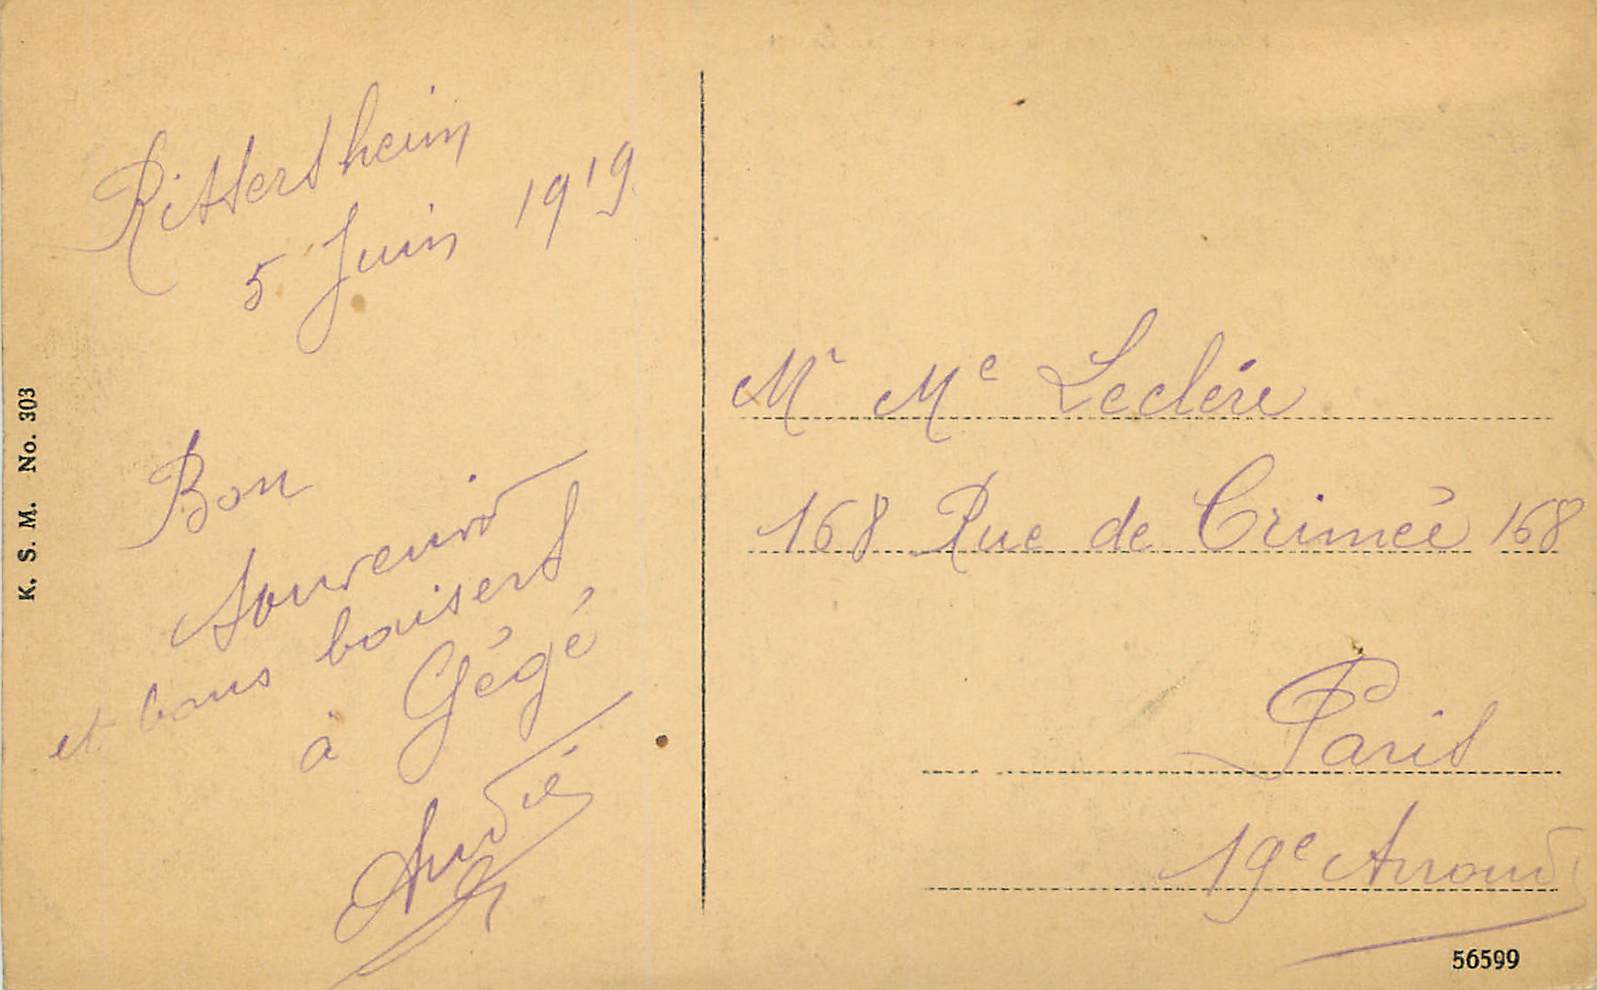 Rittersheim
5 Juin 1919
Bon
souvenir
et bons baisers
à Gégé
André
K. S. M. No. 303
Mr Me Leclére
168 Rue de Crimée 168
Paris
19e Arrond
56599